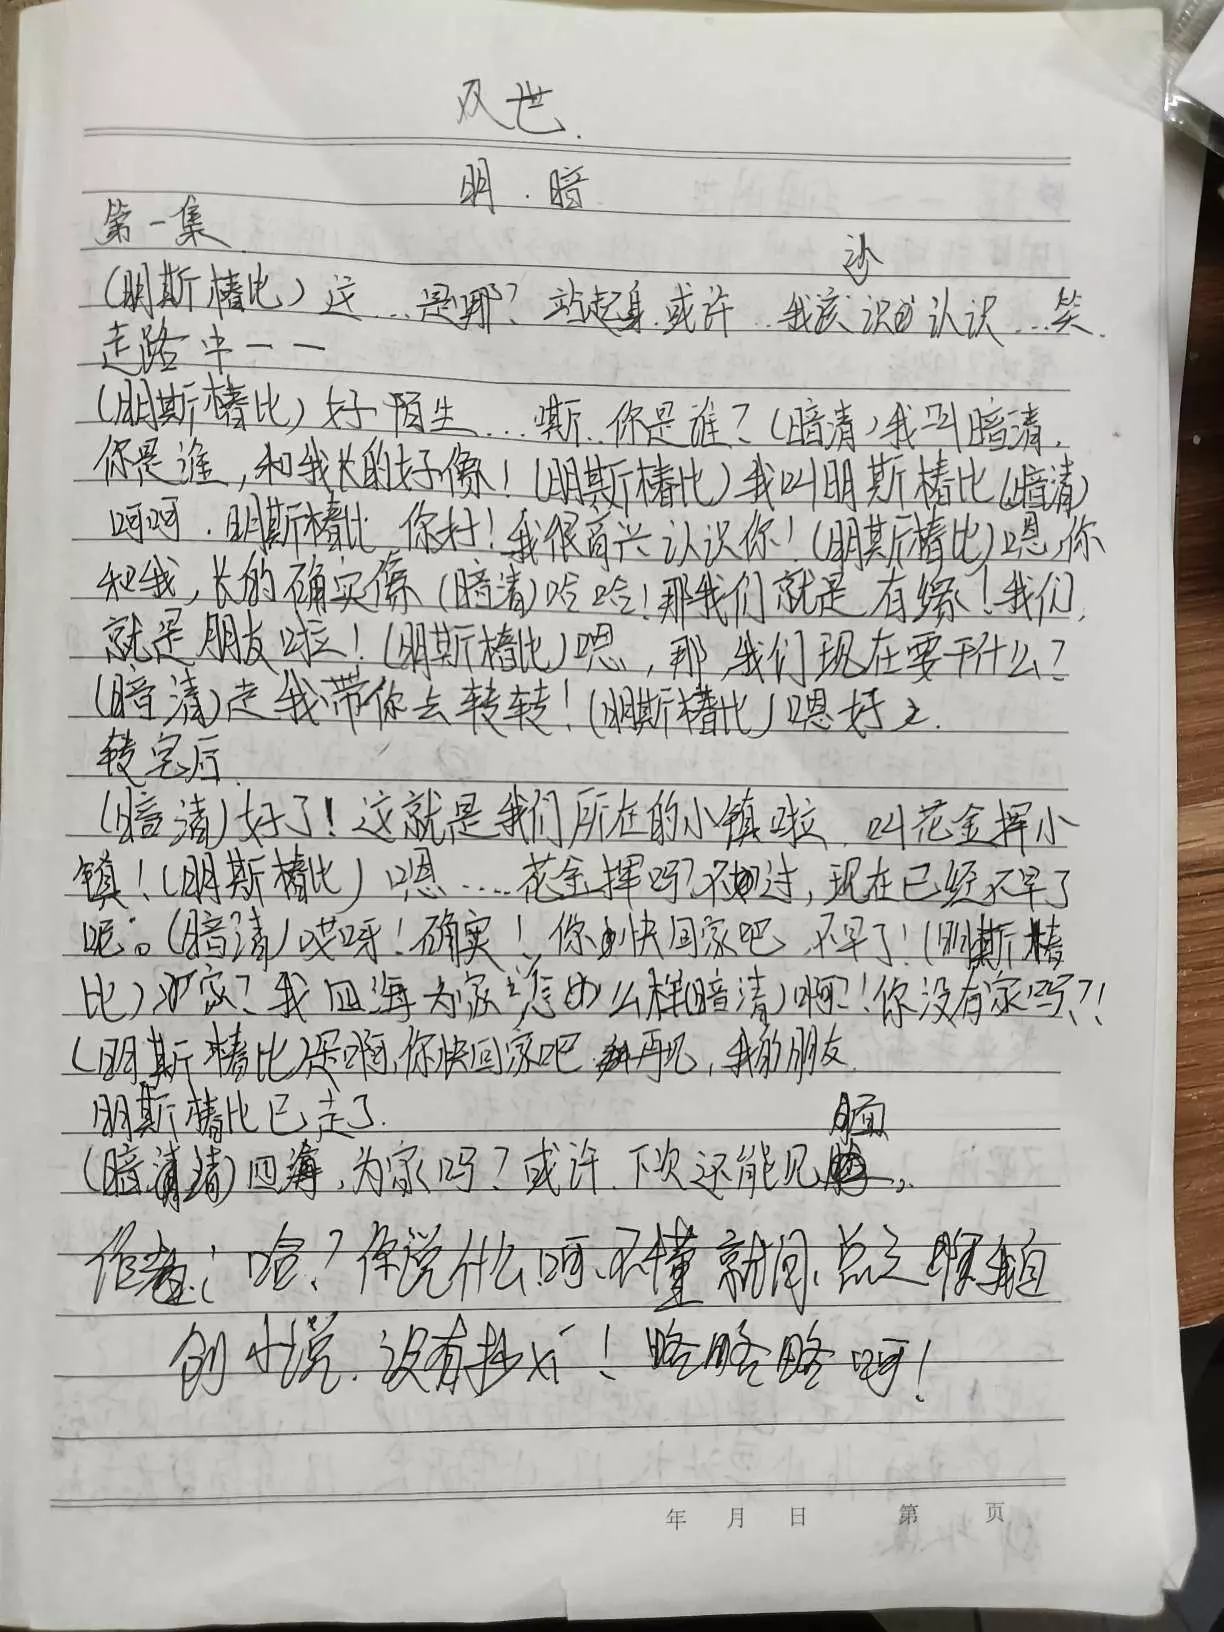 双世.
明·暗
第一集
(明斯椿比)这...是哪?站起身.或许...我该认识...笑.
走路中——
(明斯椿比)好陌生...嘶..你是谁?(暗清)我叫暗清.
你是谁,和我长的好像!(明斯椿比)我叫明斯椿比(暗清)
呵呵.明斯椿比 你好!我很高兴认识你!(明斯椿比)嗯,你
和我,长的确实像(暗清)哈哈!那我们就是有缘!我们,
就是朋友啦!(明斯椿比)嗯,那,我们现在要干什么?
(暗清)走我带你去转转!(明斯椿比)嗯好
转完后.
(暗清)好了!这就是我们所在的小镇啦.叫花金挥小
镇!(明斯椿比)嗯.....花金挥吗?不过,现在已经不早了
呢。(暗清)哎呀!确实!你快回家吧.不早了!(明斯椿
比)家?我四海为家怎么样(暗清)啊?!你没有家吗?!
(明斯椿比)是啊,你快回家吧.再见,我的朋友.
明斯椿比已走了.
(暗清)四海,为家吗?或许.下次还能见面,
作者:哈?你说什么呵.不懂就问.点之 我自
创小说.没有抄xi!略略略呵!
年 月 日 第 页